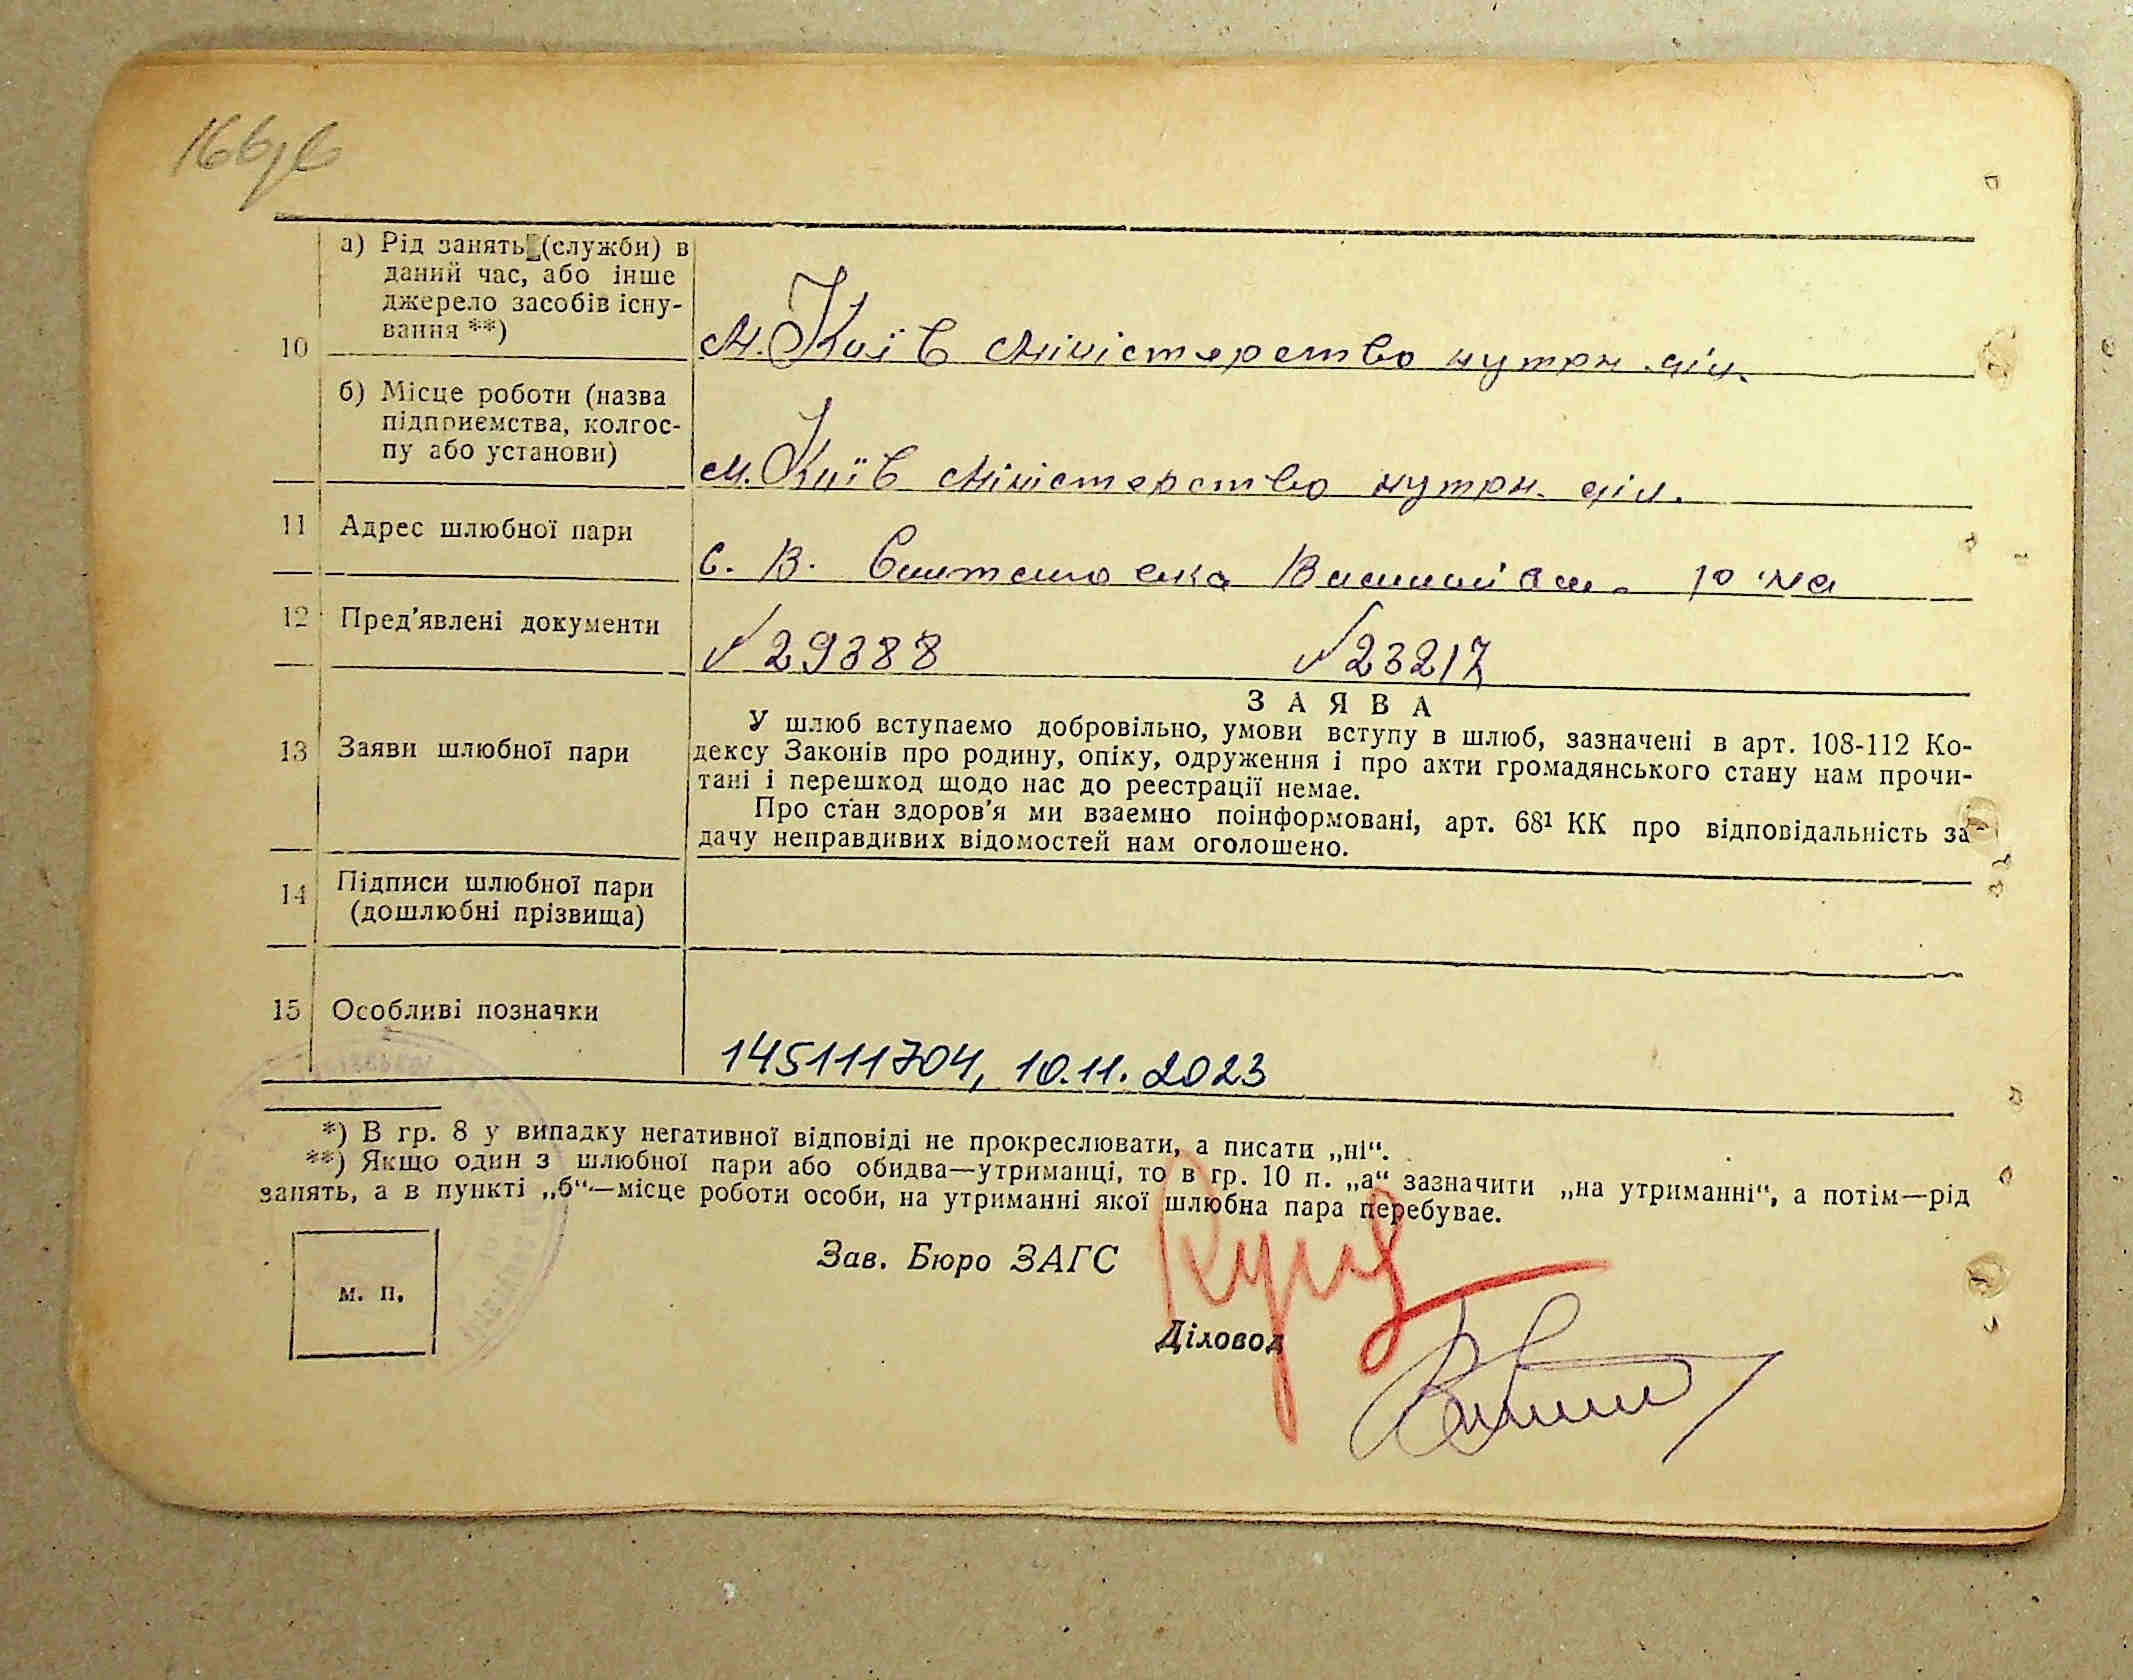 а) Рід занять (служби) в
даний час, або інше
джерело засобів існу-
вання **)
10
м. Київ Міністерство нутрн. діл.
б) Місце роботи (назва
підприємства, колгос-
пу або установи)
м. Київ Міністерство нутрн. діл.
11 Адрес шлюбної пари
с. В. Солтановка Васильків. р-на
12 Пред'явлені документи
№29388 №23217
13 Заяви шлюбної пари
ЗАЯВА
У шлюб вступаємо добровільно, умови вступу в шлюб, зазначені в арт. 108-112 Ко-
дексу Законів про родину, опіку, одруження і про акти громадянського стану нам прочи-
тані і перешкод щодо нас до реестрації немае.
Про стан здоров'я ми взаемно поінформовані, арт. 68¹ КК про відповідальність за
дачу неправдивих відомостей нам оголошено.
14 Підписи шлюбної пари
(дошлюбні прізвища)
15 Особливі позначки
145111704, 10.11.2023
*) В гр. 8 у випадку негативної відповіді не прокреслювати, а писати „ні“.
**) Якщо один з шлюбної пари або обидва—утриманці, то в гр. 10 п. „а“ зазначити „на утриманні“, а потім—рід
занять, а в пункті „б“—місце роботи особи, на утриманні якої шлюбна пара перебувае.
Зав. Бюро ЗАГС
м. п.
Діловод